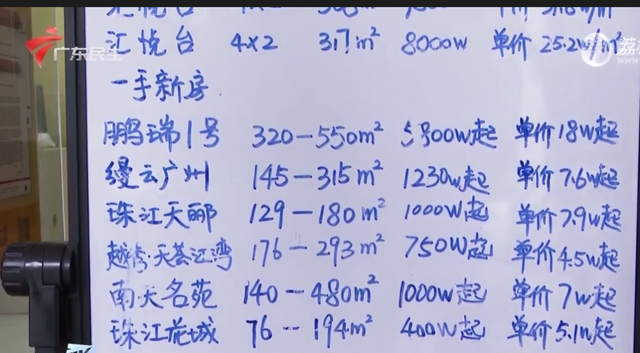 汇悦台 4x2 317m² 8000W 单价25.2w/m²
广东民生
一手新房
鹏瑞1号 320—550m² 5800W起 单价18w起
缦云广州 145—315m² 1230w起 单价7.6w起
珠江天郦 129—180m² 1000W起 单价7.9w起
越秀·天荟江湾 176—293m² 750W起 单价4.5w起
南天名苑 140—480m² 1000w起 单价7w起
珠江花城 76—194m² 400W起 单价5.1w起